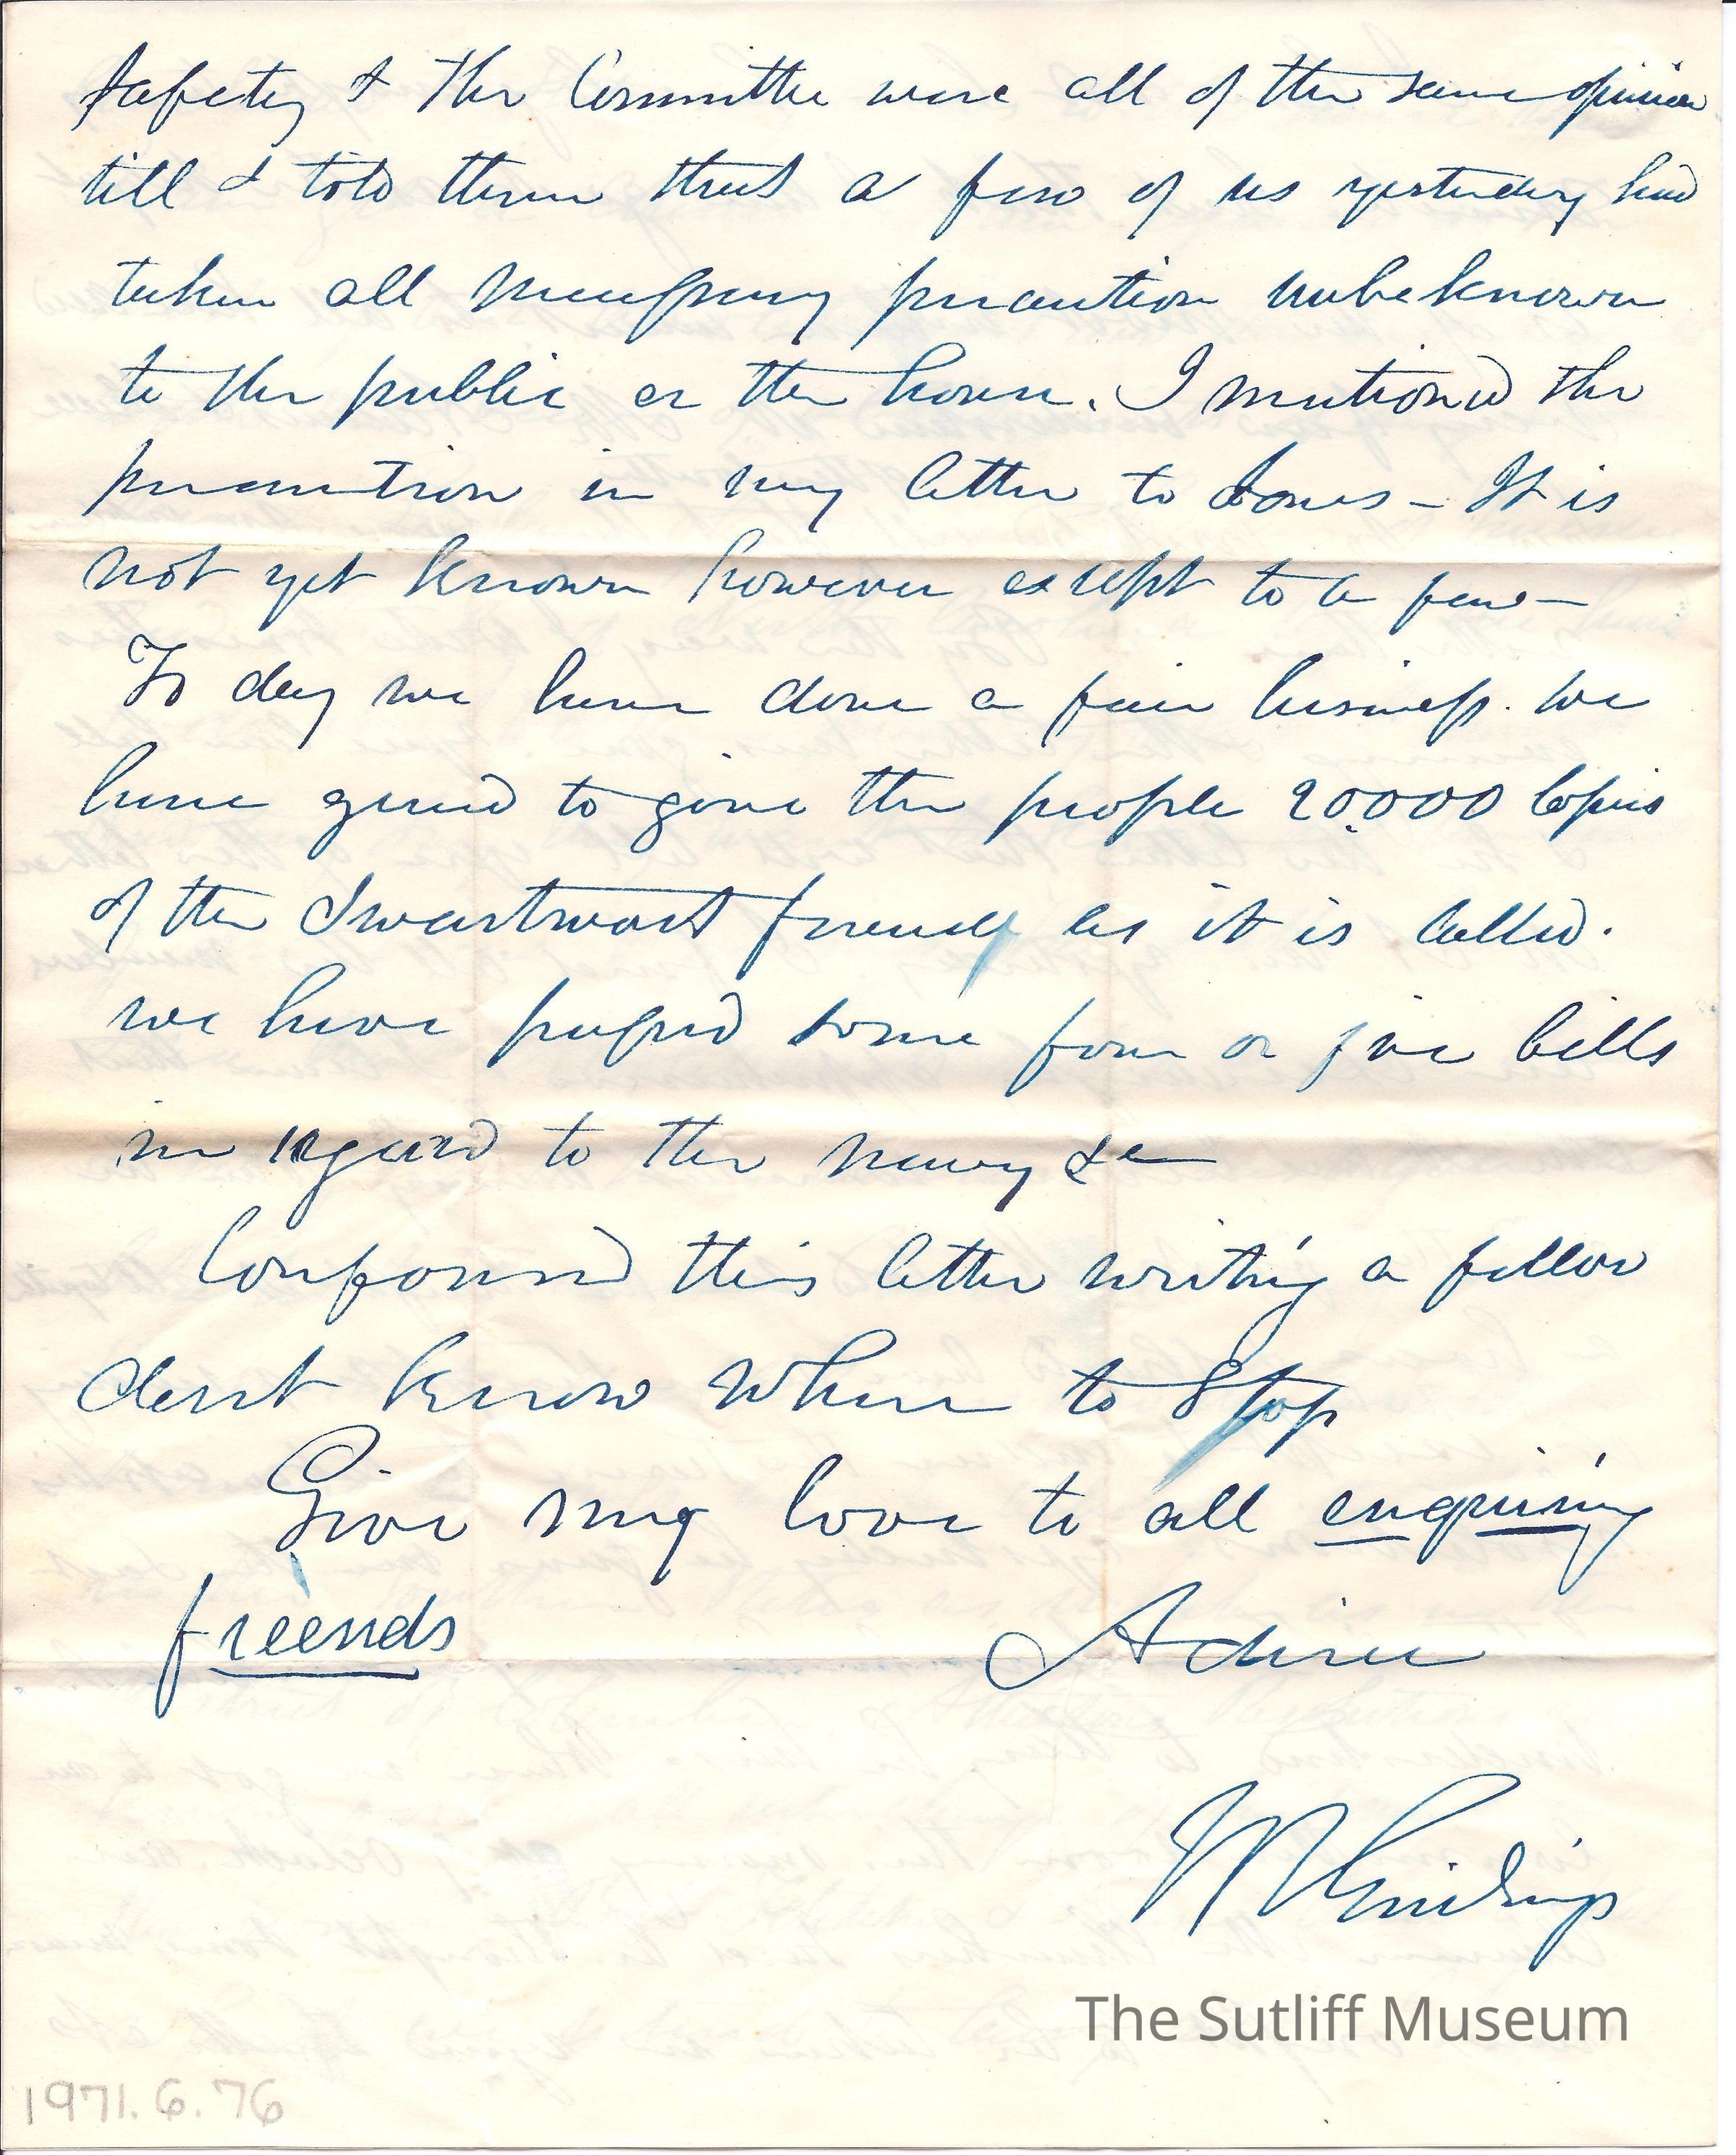 safety & the Committee were all of the same opinion
till I told them that a few of us yesterday had
taken all necessary precaution unbeknown
to the public or the house. I mentioned the
precaution in my letter to Jones - It is
not yet known however except to a few -
To day we have done a fair business. We
have agreed to give the people 20,000 Copies
of the Swartwout frauds as it is called.
we have passed some four or five bills
in regard to the navy &c
Confound this letter writing a fellow
dont know when to Stop
Give my love to all enquiring
freends
Adieu
The Sutliff Museum
1971.6.76